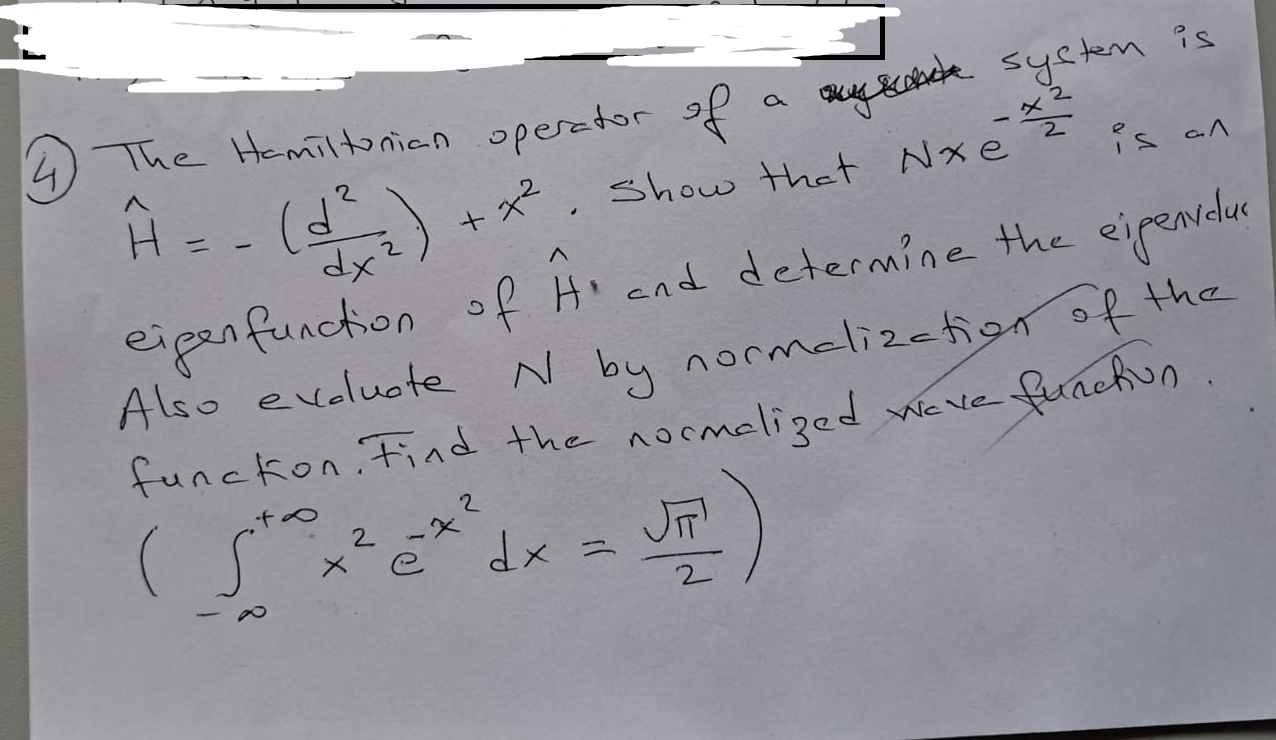 ④ The Hamiltonian operator of a system is
Ĥ = - (d²/dx²) + x². Show that Nxe^(-x²/2) is an
eigenfunction of Ĥ and determine the eigenvalue
Also evaluate N by normalization of the
function. Find the normalized wave function.
( ∫_{-∞}^{+∞} x² e^{-x²} dx = √π/2 )